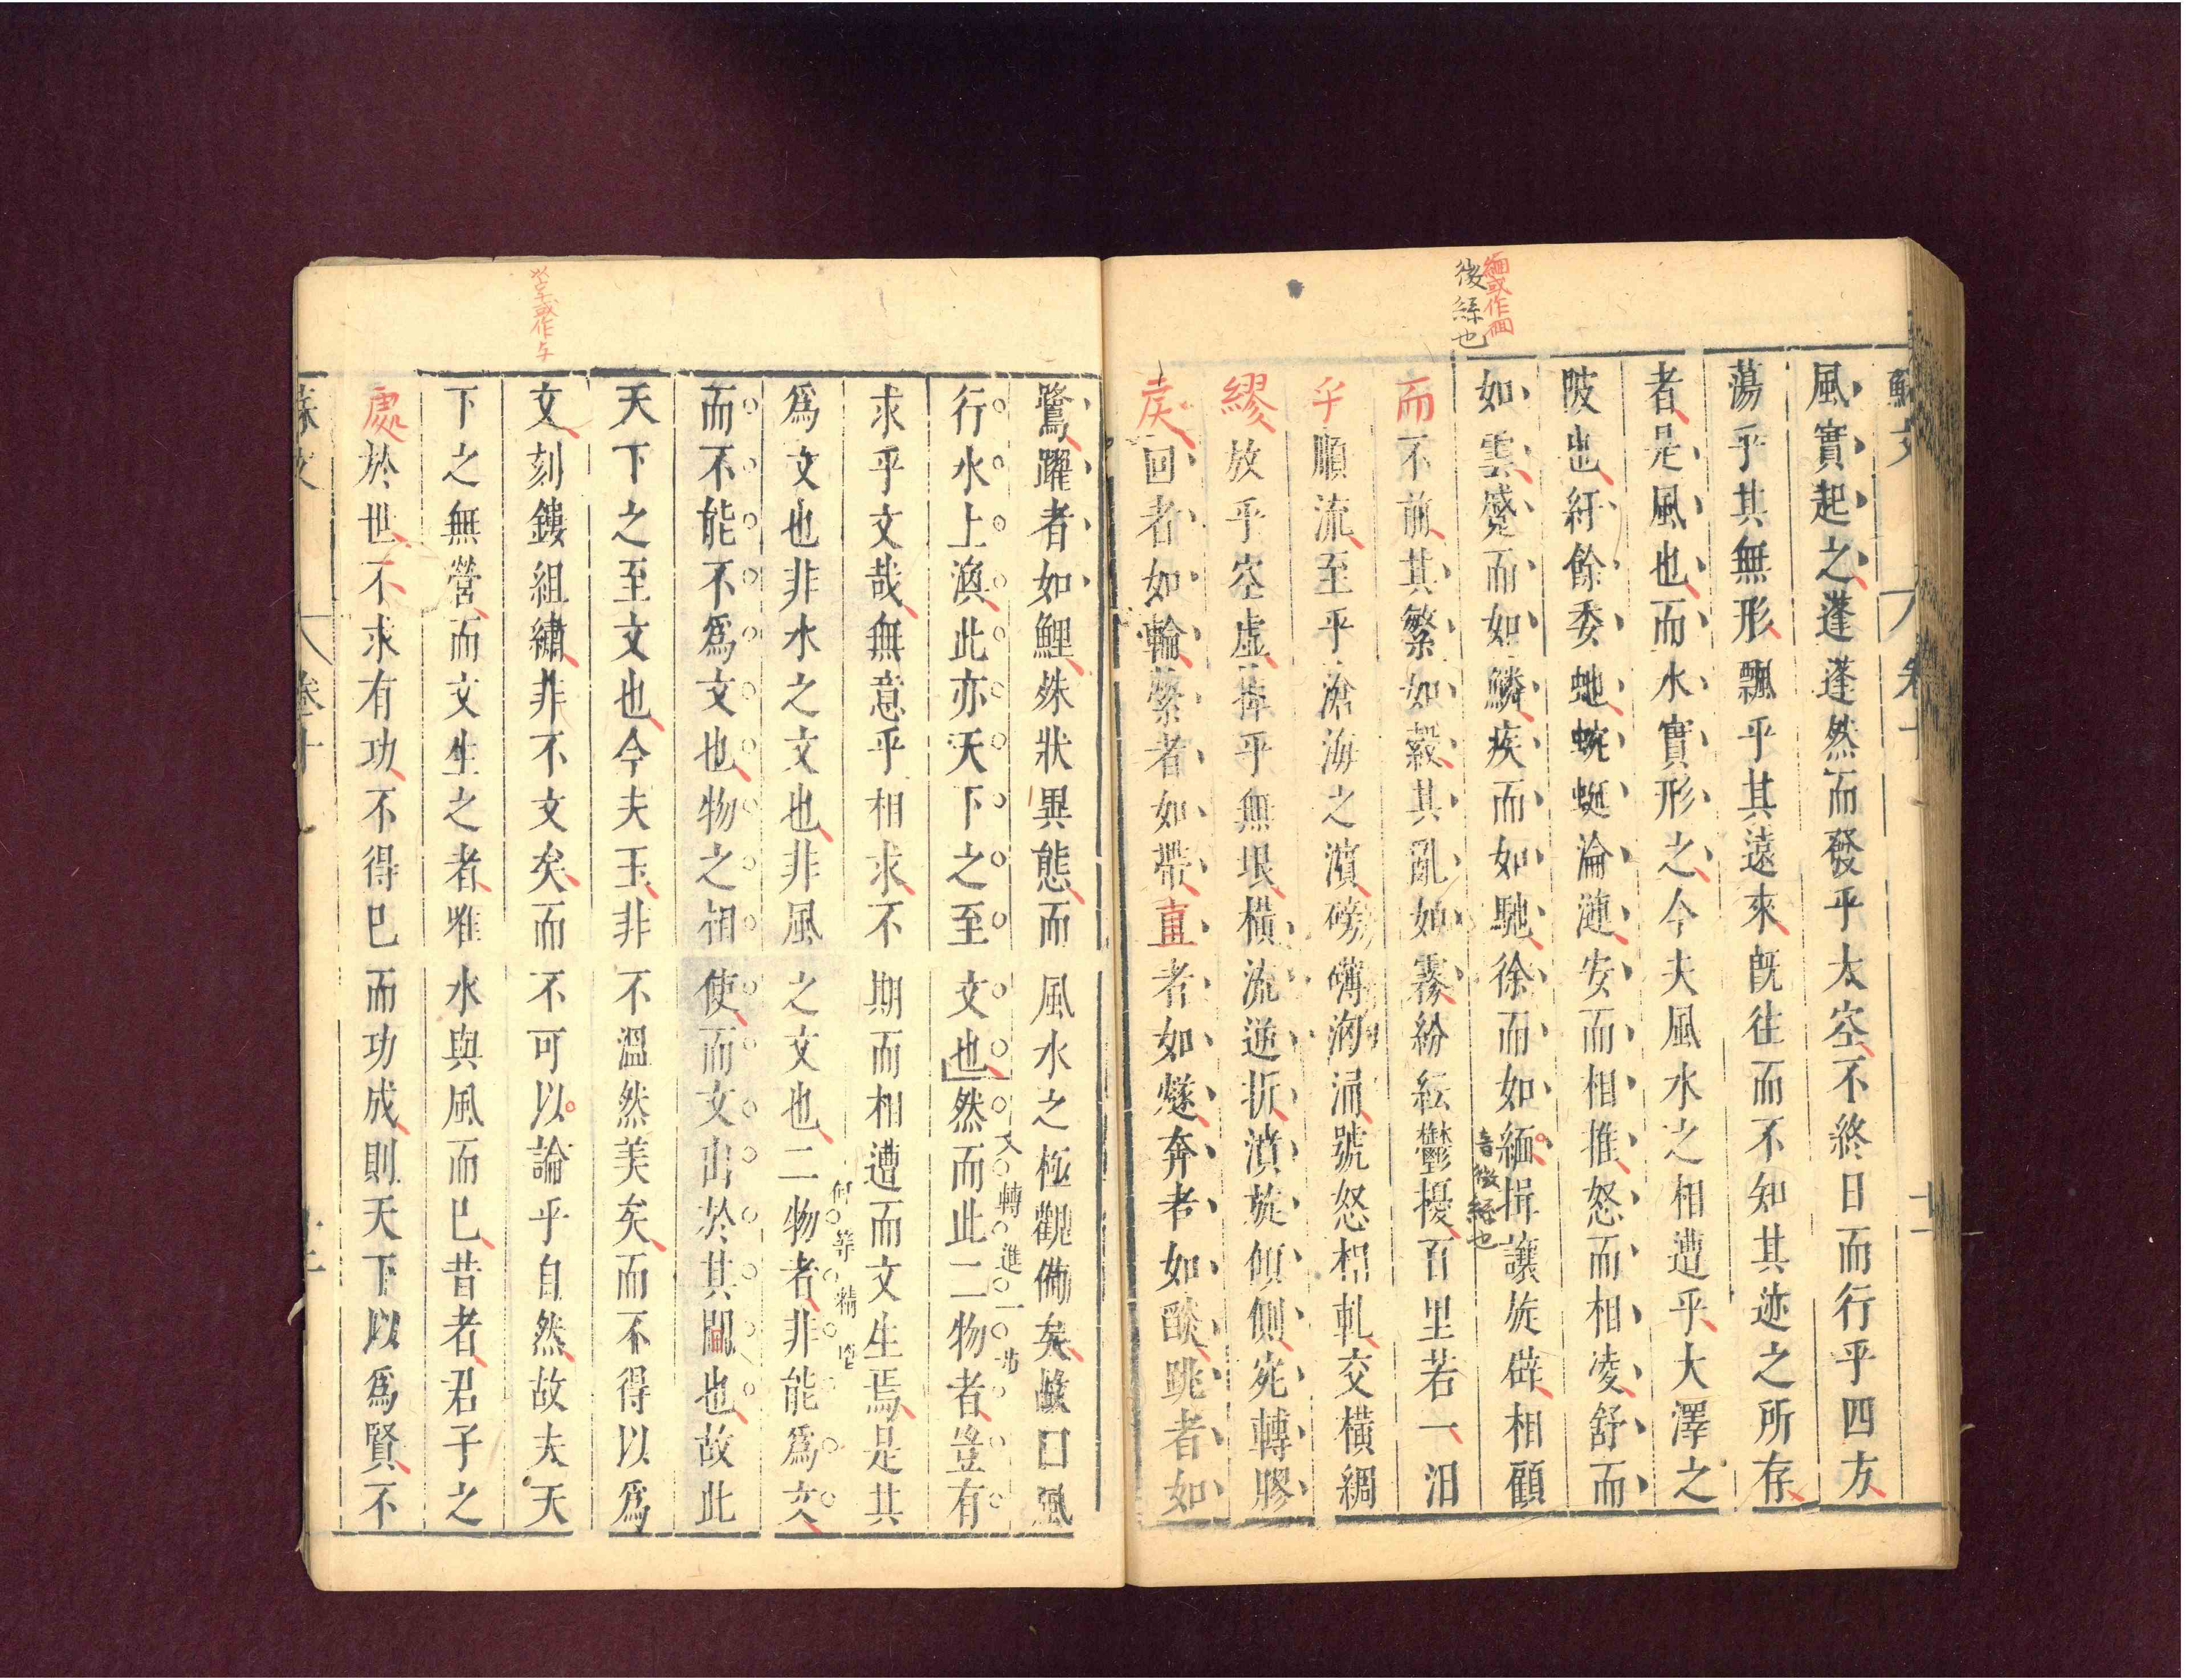 緬或作𦈢
後絲也
蘇文
卷十
十一
風實起之蓬蓬然而發乎太空不終日而行乎四方
蕩乎其無形飄乎其遠來旣往而不知其迹之所存
者是風也而水實形之今夫風水之相遭乎大澤之
陂也紆餘委虵蜿蜒淪漣安而相推怒而相凌舒而
如雲蹙而如鱗疾而如馳徐而如緬揖讓旋辟相顧
音微絲也
而不前其繁如縠其亂如霧紛紜鬱擾百里若一汨
乎順流至乎滄海之濱磅礡洶涌號怒相軋交橫綢
繆放乎空虛掉乎無垠橫流逆折濆旋傾側宛轉膠
戾回者如輪縈者如帶直者如燧奔者如燄跳者如
鷺躍者如鯉殊狀異態而風水之極觀備矣故曰風
行水上渙此亦天下之至文也然而此二物者豈有
又轉進一步
求乎文哉無意乎相求不期而相遭而文生焉是其
爲文也非水之文也非風之文也二物者非能爲文
何等精瑩
而不能不爲文也物之相使而文出於其間也故此
天下之至文也今夫玉非不溫然美矣而不得以爲
文刻鏤組繡非不文矣而不可以論乎自然故夫天
下之無營而文生之者唯水與風而已昔者君子之
處於世不求有功不得已而功成則天下以爲賢不
蘇文
卷十